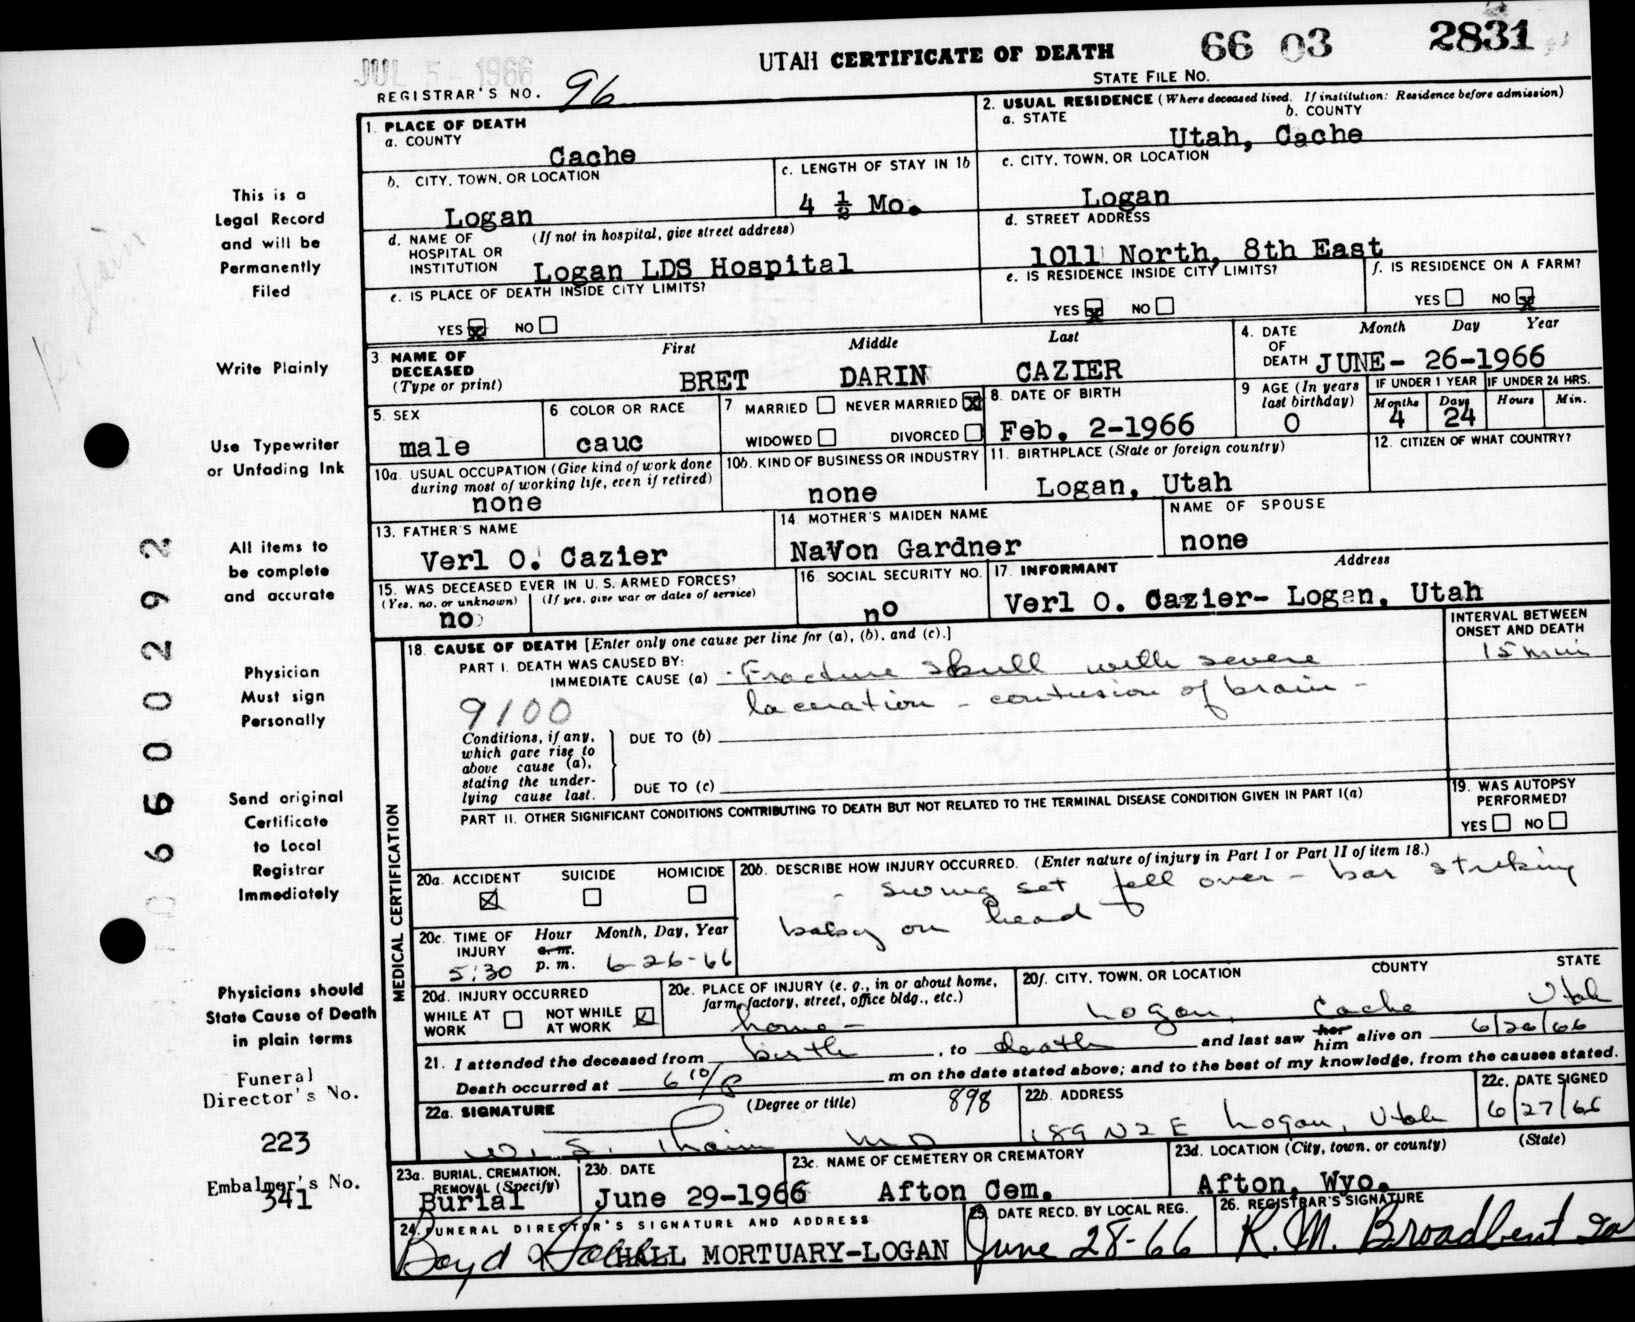 JUL 5 - 1966
UTAH CERTIFICATE OF DEATH 66 03 2831
STATE FILE NO.
REGISTRAR'S NO. 96
1. PLACE OF DEATH
a. COUNTY
Cache
2. USUAL RESIDENCE (Where deceased lived. If institution: Residence before admission)
a. STATE b. COUNTY
Utah, Cache
b. CITY, TOWN, OR LOCATION
Logan
c. LENGTH OF STAY IN 1b
4 ½ Mo.
c. CITY, TOWN, OR LOCATION
Logan
d. NAME OF HOSPITAL OR INSTITUTION (If not in hospital, give street address)
Logan LDS Hospital
d. STREET ADDRESS
1011 North, 8th East
e. IS PLACE OF DEATH INSIDE CITY LIMITS?
YES x NO
e. IS RESIDENCE INSIDE CITY LIMITS?
YES x NO
f. IS RESIDENCE ON A FARM?
YES NO x
3. NAME OF DECEASED (Type or print)
First Middle Last
BRET DARIN CAZIER
4. DATE OF DEATH Month Day Year
JUNE- 26-1966
5. SEX
male
6. COLOR OR RACE
cauc
7. MARRIED NEVER MARRIED x
WIDOWED DIVORCED
8. DATE OF BIRTH
Feb. 2-1966
9 AGE (In years last birthday)
0
IF UNDER 1 YEAR IF UNDER 24 HRS.
Months Days Hours Min.
4 24
10a. USUAL OCCUPATION (Give kind of work done during most of working life, even if retired)
none
10b. KIND OF BUSINESS OR INDUSTRY
none
11. BIRTHPLACE (State or foreign country)
Logan, Utah
12. CITIZEN OF WHAT COUNTRY?
13. FATHER'S NAME
Verl O. Cazier
14. MOTHER'S MAIDEN NAME
NaVon Gardner
NAME OF SPOUSE
none
15. WAS DECEASED EVER IN U. S. ARMED FORCES?
(Yes, no, or unknown) (If yes, give war or dates of service)
no
16. SOCIAL SECURITY NO.
no
17. INFORMANT Address
Verl O. Cazier- Logan, Utah
18. CAUSE OF DEATH [Enter only one cause per line for (a), (b), and (c).]
INTERVAL BETWEEN ONSET AND DEATH
PART I. DEATH WAS CAUSED BY:
IMMEDIATE CAUSE (a) Fracture skull with severe 15 min
laceration - contusion of brain -
9100
Conditions, if any, which gave rise to above cause (a), stating the underlying cause last.
DUE TO (b)
DUE TO (c)
PART II. OTHER SIGNIFICANT CONDITIONS CONTRIBUTING TO DEATH BUT NOT RELATED TO THE TERMINAL DISEASE CONDITION GIVEN IN PART I(a)
19. WAS AUTOPSY PERFORMED?
YES NO
MEDICAL CERTIFICATION
20a. ACCIDENT x SUICIDE HOMICIDE
20b. DESCRIBE HOW INJURY OCCURRED. (Enter nature of injury in Part I or Part II of item 18.)
- swing set fell over - bar striking
baby on head
20c. TIME OF INJURY Hour Month, Day, Year
a.m.
5:30 p.m. 6-26-66
20d. INJURY OCCURRED
WHILE AT WORK NOT WHILE AT WORK x
20e. PLACE OF INJURY (e. g., in or about home, farm, factory, street, office bldg., etc.)
home -
20f. CITY, TOWN, OR LOCATION COUNTY STATE
Logan, Cache Utah
21. I attended the deceased from birth, to death and last saw her him alive on 6/26/66
Death occurred at 6 10/P m on the date stated above; and to the best of my knowledge, from the causes stated.
22a. SIGNATURE (Degree or title) 898
MD
22b. ADDRESS
189 N 2 E Logan, Utah
22c. DATE SIGNED
6/27/66
23a. BURIAL, CREMATION, REMOVAL (Specify)
Burial
23b. DATE
June 29-1966
23c. NAME OF CEMETERY OR CREMATORY
Afton Cem.
23d. LOCATION (City, town, or county) (State)
Afton, Wyo.
24. FUNERAL DIRECTOR'S SIGNATURE AND ADDRESS
Boyd HALL MORTUARY-LOGAN
25. DATE RECD. BY LOCAL REG.
June 28-66
26. REGISTRAR'S SIGNATURE
R. M. Broadbent
This is a
Legal Record
and will be
Permanently
Filed
Write Plainly
Use Typewriter
or Unfading Ink
All items to
be complete
and accurate
Physician
Must sign
Personally
Send original
Certificate
to Local
Registrar
Immediately
Physicians should
State Cause of Death
in plain terms
Funeral
Director's No.
223
Embalmer's No.
341
0 6 6 0 0 2 9 2